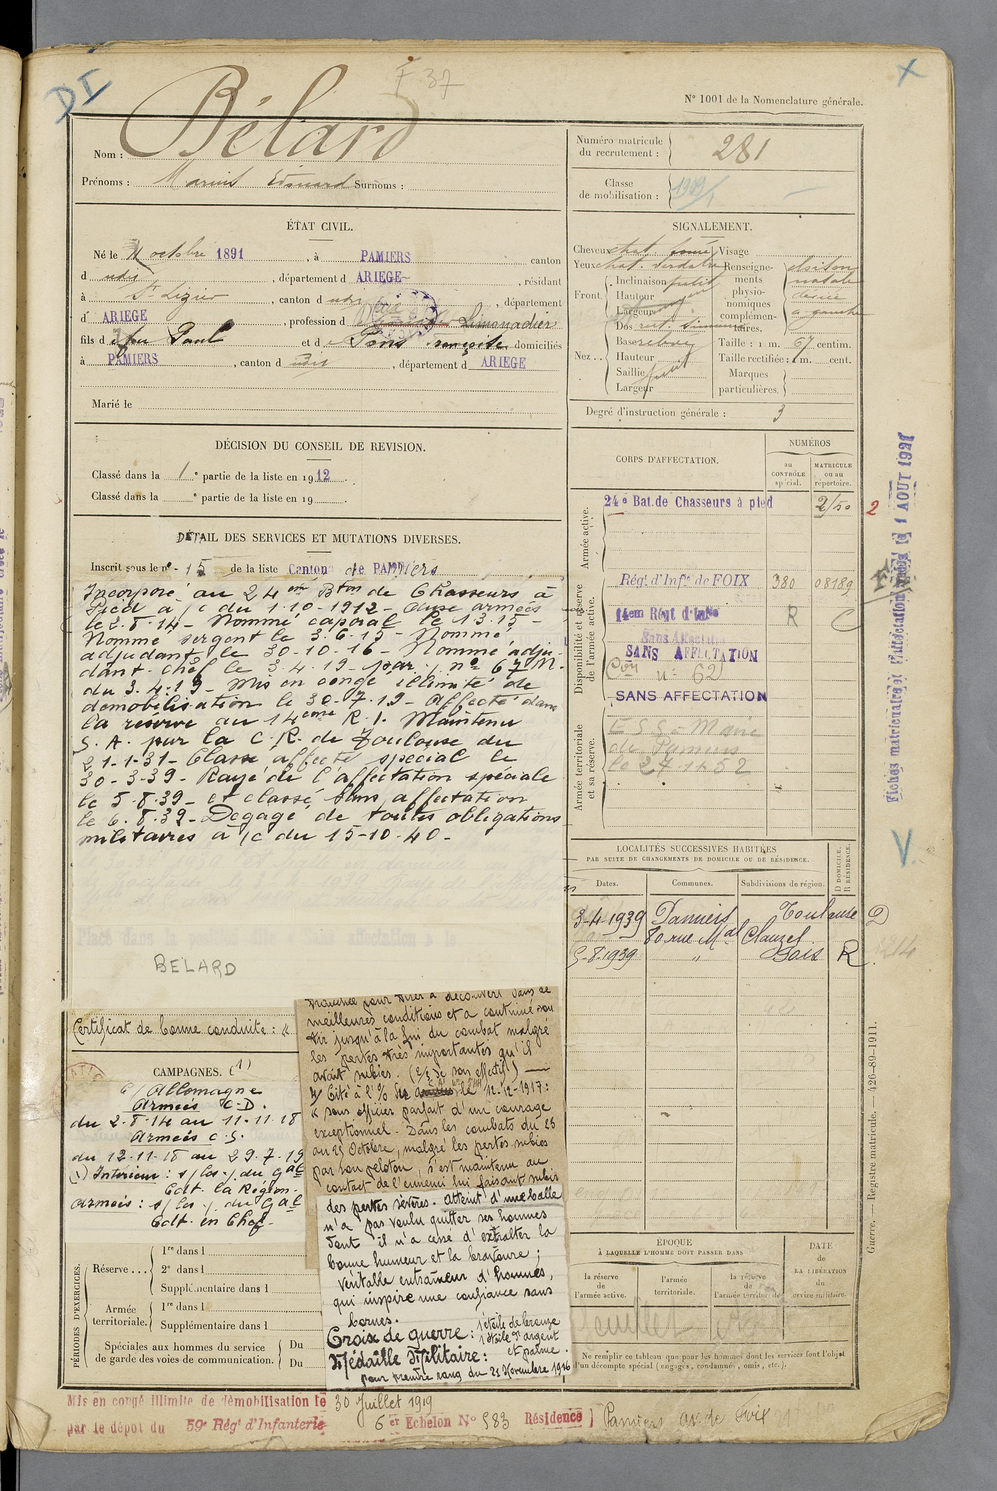 DI
F 37
N° 1001 de la Nomenclature générale.
Nom : Bélard
Prénoms : Marius Edouard Surnoms :
Numéro matricule du recrutement : 281
Classe de mobilisation : 1909/1
ÉTAT CIVIL.
Né le 11 octobre 1891, à PAMIERS canton
d udit, département d ARIEGE, résidant
à St Lizier, canton d udit, département
d' ARIEGE, profession d Limonadier
fils d e feu Paul et d e Pons Françoise domiciliés
à PAMIERS, canton d udit, département d ARIEGE
Marié le
SIGNALEMENT.
Cheveux chat. Visage
Yeux chat. verdatre
Renseignements physionomiques complémentaires.
cloison
nasale
deviée
à gauche
Front.
Inclinaison petit
Hauteur
Largeur
Nez...
Dos rect. sinueux
Base
Hauteur
Saillie petit
Largeur
Taille : 1 m. 67 centim.
Taille rectifiée : 1 m. cent.
Marques particulières.
Degré d'instruction générale : 3
DÉCISION DU CONSEIL DE REVISION.
Classé dans la 1e partie de la liste en 1912
Classé dans la e partie de la liste en 19
DÉTAIL DES SERVICES ET MUTATIONS DIVERSES.
Inscrit sous le n° 15 de la liste Canton de Pamiers
Incorporé au 24ème Bton de Chasseurs à
Pied à /c du 1-10-1912 - aux armées
le 2.8.14 - Nommé caporal le 1.3.15 -
Nommé sergent le 3.6.15 - Nommé
adjudant le 30-10-16 - Nommé adju-
dant-chef le 3.4.19 - par , n° 67 M.
du 3.4.19 - Mis en congé illimité de
démobilisation le 30.7.19 - Affecté dans
la réserve au 14ème R.I. Maintenu
S.A. par la C.R. de Toulouse du
21-1-31 - Classé affecté spécial le
30-3-39 - Rayé de l'affectation spéciale
le 5.8.39 - et classé sans affectation
le 6.8.39 - Dégagé de toutes obligations
militaires à /c du 15-10-40 -
Placé dans la affectation
BELARD
CORPS D'AFFECTATION.
NUMÉROS
au CONTRÔLE spécial.
MATRICULE ou au répertoire.
Armée active.
24e Bat. de Chasseurs à pied
2150
2
Disponibilité et réserve de l'armée active.
Rég. d'Infie de FOIX 380 08189
14em Régt d'Infie R C
Sans Affectation
SANS AFFECTATION
Con n° 62
SANS AFFECTATION
Armée territoriale et sa réserve.
E.S.S - Mairie
de Pamiers
le 27.1.52
LOCALITÉS SUCCESSIVES HABITÉES
PAR SUITE DE CHANGEMENTS DE DOMICILE OU DE RÉSIDENCE.
Dates.
Communes.
Subdivisions de région.
D DOMICILE. R RÉSIDENCE.
3-4-1939 Pamiers Toulouse D
80 rue Mal Clauzel
5-8-1939 " Foix R
Certificat de bonne conduite :
CAMPAGNES. (1)
C/ Allemagne
Armées C-D.
du 2-8-14 au 11-11-18
Armées C.S.
du 12-11-18 au 29.7.19
(1) Intérieur : s/ les , du Gal
Cdt. la Région.
Armées : s/ les , du Gal
Cdt. en Chef -
tranchée pour tirer à découvert dans de
meilleures conditions et a continué son
tir jusqu'à la fin du combat malgré
les pertes très importantes qu'il
avait subies. (2/3 de son effectif)
Cité à l'O/ le 12-12-1917 :
« sous officier parfait d'un courage
exceptionnel - Dans les combats du 23
au 25 Octobre, malgré les pertes subies
par son peloton, s'est maintenu au
contact de l'ennemi lui faisant subir
des pertes sévères. Atteint d'une balle
n'a pas voulu quitter ses hommes
dont il n'a cessé d'exalter la
bonne humeur et la bravoure ;
véritable entraîneur d'hommes,
qui inspire une confiance sans
bornes.
Croix de guerre : 1 étoile de bronze
1 étoile d'argent
et palme.
Médaille Militaire :
pour prendre rang du 21 Novembre 1916
PÉRIODES D'EXERCICES.
Réserve...
1re dans l
2e dans l
Supplémentaire dans l
Armée territoriale.
1re dans l
Supplémentaire dans l
Spéciales aux hommes du service de garde des voies de communication.
Du
Du
ÉPOQUE
À LAQUELLE L'HOMME DOIT PASSER DANS
la réserve de l'armée active.
l'armée territoriale.
la réserve de l'armée territoriale.
DATE de LA LIBÉRATION du service militaire.
Ne remplir ce tableau que pour les hommes dont les services font l'objet d'un décompte spécial (engagés, condamnés, omis, etc.).
Mis en congé illimité de démobilisation le 30 Juillet 1919
par le dépôt du 59e Régt d'Infanterie 6er Echelon N° 583 Résidence Pamiers ar. de Foix
Guerre. — Registre matricule. — 426-89-1911.
AOUT 1927